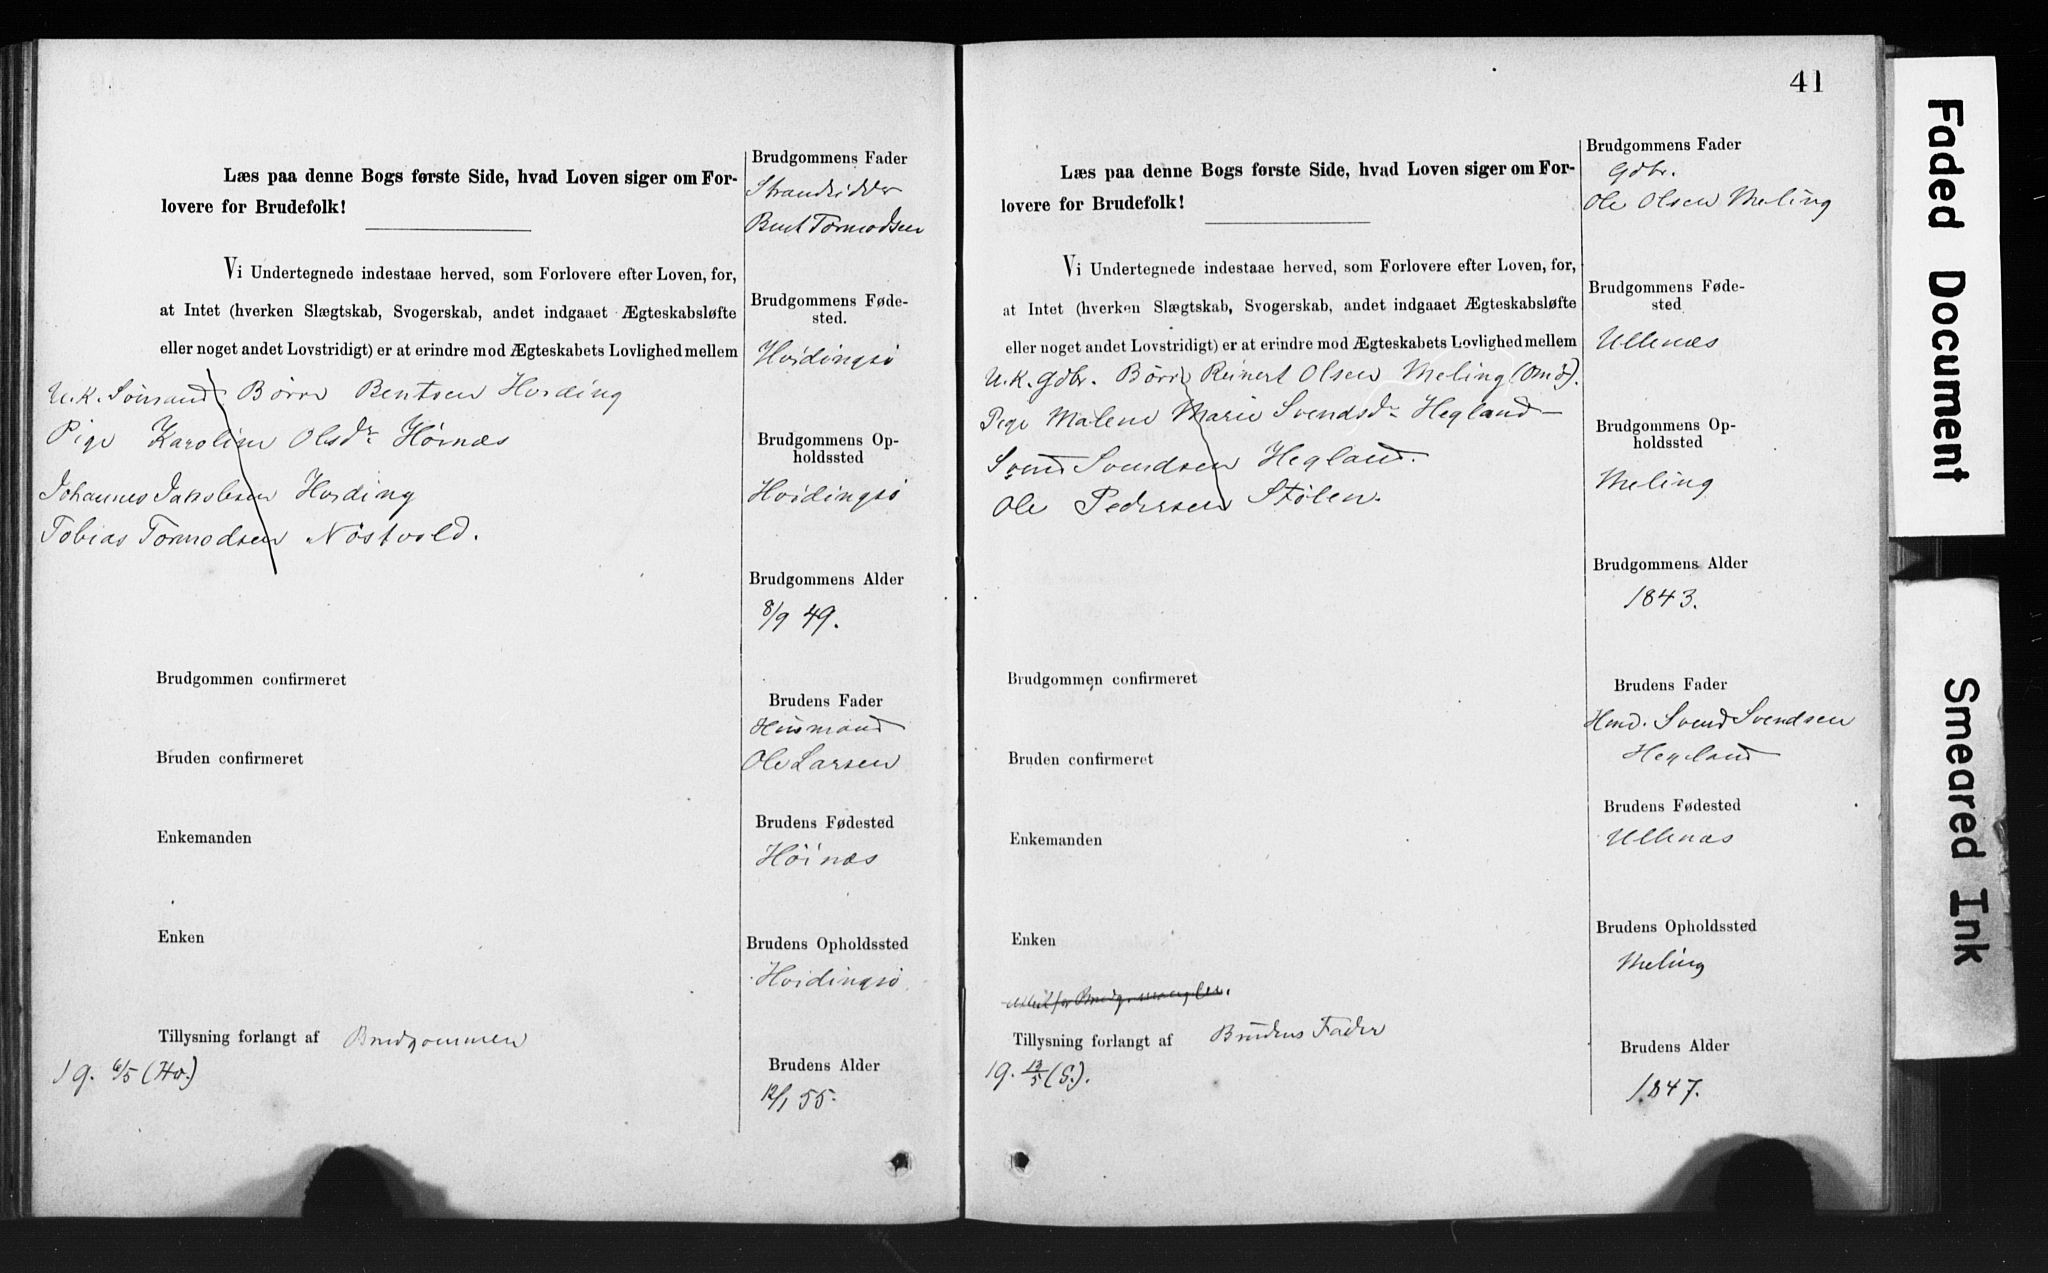 Læs paa denne Bogs første Side, hvad Loven siger om For-
lovere for Brudefolk!
Vi Undertegnede indestaae herved, som Forlovere efter Loven, for,
at Intet (hverken Slægtskab, Svogerskab, andet indgaaet Ægteskabsløfte
eller noget andet Lovstridigt) er at erindre mod Ægteskabets Lovlighed mellem
U.K. Sömand Börre Bentsen Hviding
Pige Karoline Olsdr Höinæs
Johannes Jakobsen Hviding
Tobias Tormodsen Nöstvold.
Brudgommen confirmeret
Bruden confirmeret
Enkemanden
Enken
Tillysning forlangt af Brudgommen
19. 6/5 (Hv.)
Brudgommens Fader
Strandsidder
Bent Tormodsen
Brudgommens Føde-
sted.
Hvidingsö
Brudgommens Op-
holdssted
Hvidingsö
Brudgommens Alder
8/9 49.
Brudens Fader
Husmand
Ole Larsen
Brudens Fødested
Höinæs
Brudens Opholdssted
Hvidingsö.
Brudens Alder
12/1 55.
41
Læs paa denne Bogs første Side, hvad Loven siger om For-
lovere for Brudefolk!
Vi Undertegnede indestaae herved, som Forlovere efter Loven, for,
at Intet (hverken Slægtskab, Svogerskab, andet indgaaet Ægteskabsløfte
eller noget andet Lovstridigt) er at erindre mod Ægteskabets Lovlighed mellem
U.K. Gdbr. Börre Reinert Olsen Meling (Omö).
Pige Malene Marie Svendsdr Hegland
Svend Svendsen Hegland.
Ole Pedersen Stölen.
Brudgommen confirmeret
Bruden confirmeret
Enkemanden
Enken
Tillysning forlangt af Brudens Fader
19. 13/5 (S.).
Brudgommens Fader
Gdbr.
Ole Olsen Meling
Brudgommens Føde-
sted
Ullenæs
Brudgommens Op-
holdssted
Meling
Brudgommens Alder
1843.
Brudens Fader
Hmd. Svend Svendsen
Hegland
Brudens Fødested
Ullenæs
Brudens Opholdssted
Meling
Brudens Alder
1847.
Faded Document
Smeared Ink